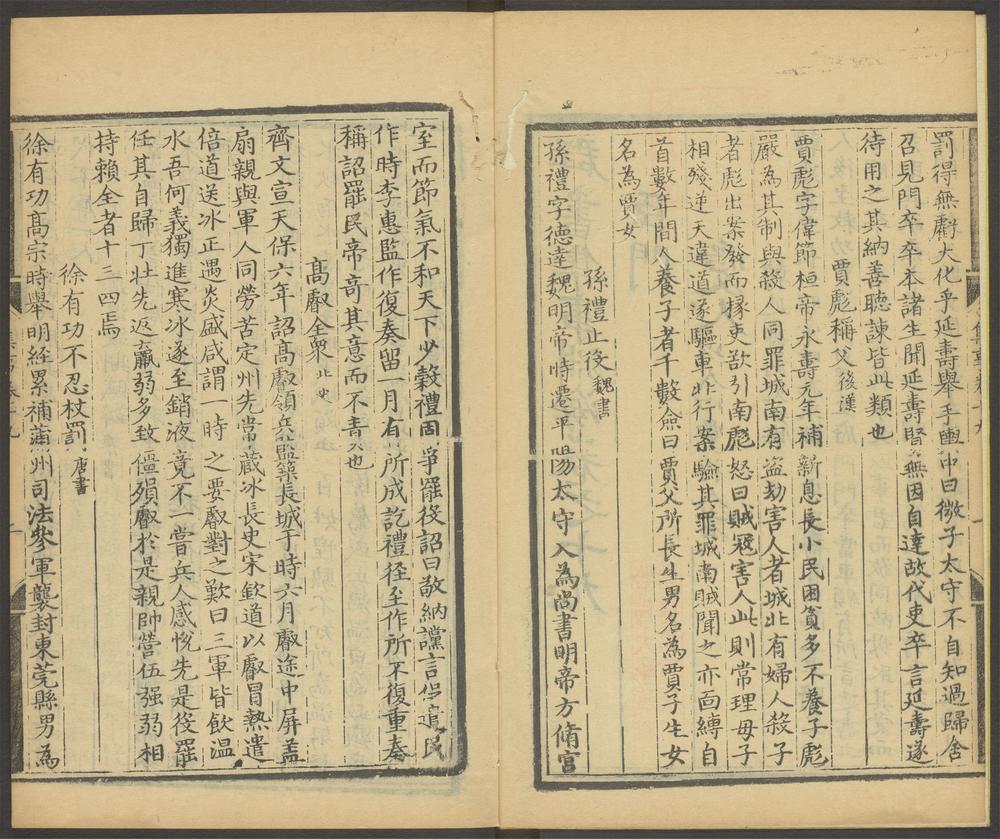 罰得無虧大化乎延壽舉手輿中曰微子太守不自知過歸舍
召見門卒卒本諸生聞延壽賢無因自達故代吏卒言延壽遂
待用之其納善聽諫皆此類也
賈彪稱父後漢
賈彪字偉節桓帝永壽元年補新息長小民困貧多不養子彪
嚴為其制與殺人同罪城南有盜劫害人者城北有婦人殺子
者彪出案發而掾吏欲引南彪怒曰賊寇害人此則常理母子
相殘逆天違道遂驅車北行案驗其罪城南賊聞之亦面縛自
首數年間人養子者千數僉曰賈父所長生男名為賈子生女
名為賈女
孫禮止役魏書
孫禮字德達魏明帝時遷平陽太守入為尚書明帝方脩宮
室而節氣不和天下少穀禮固爭罷役詔曰敬納讜言促遣民
作時李惠監作復奏留一月有所成訖禮徑至作所不復重奏
稱詔罷民帝奇其意而不責也
高叡全眾北史
齊文宣天保六年詔高叡領兵監築長城于時六月叡途中屏蓋
扇親與軍人同勞苦定州先常藏冰長史宋欽道以叡冒熱遣
倍道送冰正遇炎盛咸謂一時之要叡對之歎曰三軍皆飲溫
水吾何義獨進寒冰遂至銷液竟不一嘗兵人感悅先是役罷
任其自歸丁壯先返羸弱多致僵殞叡於是親帥營伍强弱相
持賴全者十三四焉
徐有功不忍杖罰唐書
徐有功髙宗時舉明經累補蒲州司法參軍襲封東莞縣男為